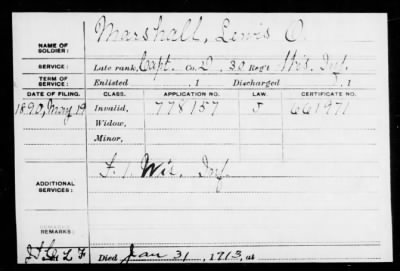 NAME OF SOLDIER: Marshall, Lewis O.
SERVICE: Late rank, Capt. Co. D, 30 Reg't Wis. Inf.
TERM OF SERVICE: Enlisted , 1 Discharged , 1
DATE OF FILING. CLASS. APPLICATION NO. LAW. CERTIFICATE NO.
1890, May 19 Invalid, 778157 J 661971
Widow,
Minor,
ADDITIONAL SERVICES: Wis. Inf.
REMARKS:
Died Jan 31, 1913, at